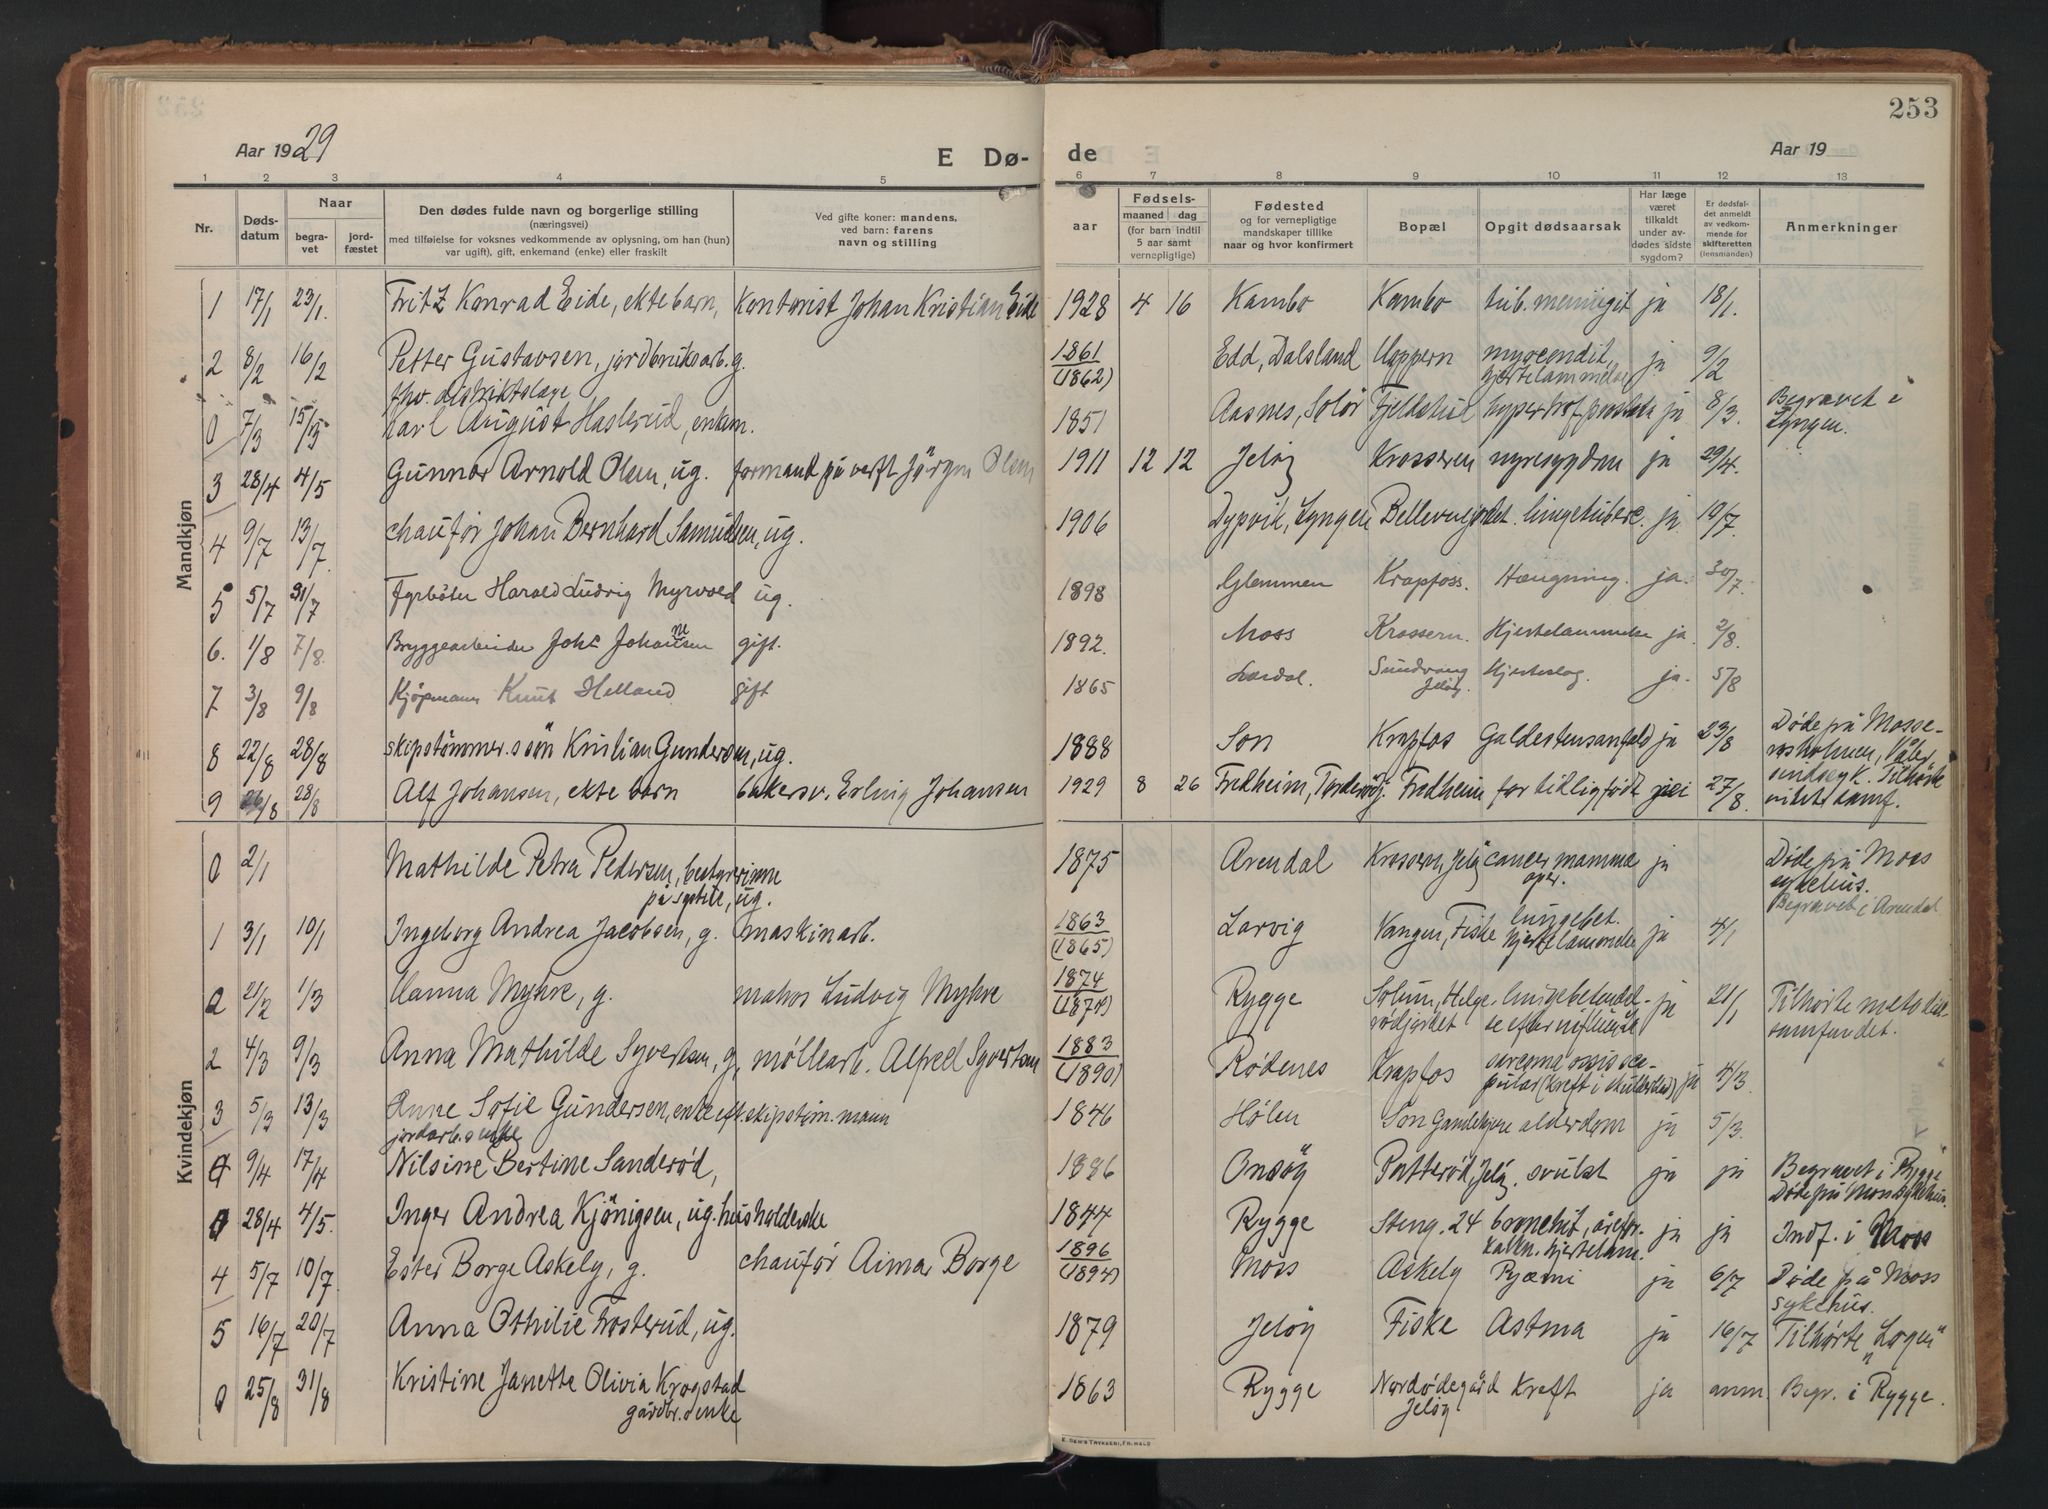 253
Aar 1929
E Dø-
de
Aar 19
1 2 3 4 5 6 7 8 9 10 11 12 13
Nr.
Døds-
datum
Naar
begra-
vet
jord-
fæstet
Den dødes fulde navn og borgerlige stilling
(næringsvei)
med tilføielse for voksnes vedkommende av oplysning, om han (hun)
var ugift), gift, enkemand (enke) eller fraskilt
Ved gifte koner: mandens,
ved barn: farens
navn og stilling
aar
Fødsels-
maaned dag
(for barn indtil
5 aar samt
vernepligtige)
Fødested
og for vernepligtige
mandskaper tillike
naar og hvor konfirmert
Bopæl
Opgit dødsaarsak
Har læge
været
tilkaldt
under av-
dødes sidste
sygdom?
Er dødsfal-
det anmeldt
av vedkom-
mende for
skifteretten
(lensmanden)
Anmerkninger
Mandkjøn
1 17/1 23/1. Fritz Konrad Eide, ekte barn, Kontorist Johan Kristian Eide 1928 4 16 Kambo Kambo tub. meningit ja 18/1.
2 8/2 16/2 Petter Gustavsen, jordbruksarb. g. 1861 (1862) Edd, Dalsland Noppern hjertelammelse ja 9/2
fhv. distriktslæge
0 7/3 15/3 Karl August Haslerud, enkem. 1851 Aasnes, Solør Fjeldstul hypertrof. prostata ja 8/3 Begravet i
Lyngen.
3 28/4 4/5 Gunnar Arnold Olsen, ug. formand på verft Jörgen Olsen 1911 12 12 Jeløy Krosseren nyresygdom ja 29/4.
4 9/7 13/7. chauför Johan Bernhard Samuelsen, ug. 1906 Dypvik, Lyngen Bellevuejordet. lungetuberc. ja 10/7.
5 5/7 31/7 Fyrböter Harald Ludvig Myrvold ug. 1898 Glemmen Krapfoss. Hængning. ja. 30/7.
6. 1/8 7/8. Bryggearbeider Johs Johannsen gift. 1892. Moss Krossern. Hjertelammelse ja. 2/8.
7 3/8 9/8 Kjöpmann Knut Helland gift 1865 Lærdal. Sundvang Jeløy. Hjerteslag. ja. 5/8
8 22/8 28/8 skipstömmer.s søn Kristian Gundersen, ug. 1888 Son Krapfos Galdestensanfald ja 23/8 Døde på Mosse-
9 26/8 28/8 Alf Johansen, ekte barn bakersv. Erling Johansen 1929 8 26 Fredheim, Torderödj. Fredheim for tidlig født nei 27/8.
Kvindekjøn
0 2/1 Mathilde Petra Pedersen, bestyrerinne
på systue, ug. 1875 Arendal Krossern, Jeløy cancer mamma oper. ja Døde på Moss
sykehus.
Begravet i Arendal
1 3/1 10/1 Ingeborg Andrea Jacobsen, g. maskinarb. 1863 (1865) Larvig Vangen, Fiske lungebet. hjertelammelse ja 4/1
2 21/2 1/3 Hanna Myhre, g. Ludvig Myhre 1874 (1874) Rygge Solum, Helge-
rödjordet lungebetendel-
se efter influensa ja 21/1 Tilhørte metodist-
samfundet.
2 4/3 9/3 Anna Mathilde Syvertsen, g, møllearb. Alfred Syvertsen 1883 (1890) Rødenes Krapfos (kreft i skulderblad), ja 4/3
3 5/3 13/3 Anne Sofie Gundersen, enke eft. skipstöm.mann 1846 Hølen Son Gamlehjem alderdom ja 5/3.
jordarb.s enke
0 9/4 17/4 Nilsine Bertine Sanderød, Onsøy Patterød, Jeløy. svulst ja ja Begravet i Rygge
Døde på Moss sykehus.
0 28/4 4/5. Inger Andrea Kjönigsen, ug. husholderske 1844 Rygge Steng. 24 bronchit, årefor-
kalkn. hjertelam. ja ja Indf. i Moss
4 5/7 10/7. Ester Borge Askely, g. chauför Aimar Borge 1896 (1894) Moss Askely Pyæmi ja 6/7 Døde på Moss
sykehus.
5 16/7 20/7 Anna Othilie Frosterud, ug. 1879 Jeløy Fiske Astma ja 16/7 Tilhørte "Logen"
0 25/8 31/8 Kristine Janette Olivia Krogstad
gårdbr.s enke 1863 Rygge Nordødegård
Jeløy Kreft ja anm. Begr. i Rygge.
E. SEM'S TRYKKERI, FR.HALD